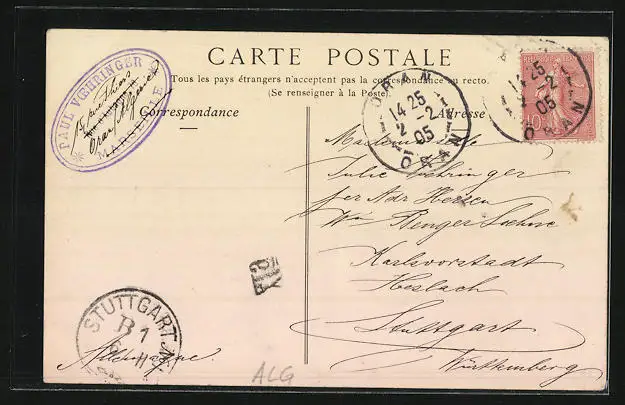 CARTE POSTALE
Tous les pays étrangers n'acceptent pas la correspondance au recto.
(Se renseigner à la Poste).
Correspondance
Adresse
PAUL VŒHRINGER
MARSEILLE
Oran Algérie
ORAN
14 25
2 - 2
05
ORAN
14 25
2 - 2
05
ORAN
10
Mademoiselle
Julie Vœhringer
per Adr Herren
Wm Benger Soehne
Karlsvorstadt
Heslach
Stuttgart
Württemberg
Allemagne.
STUTTGART
B 1
ALG